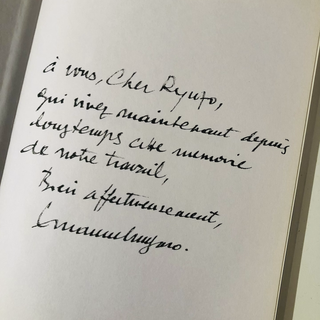 à vous, Cher Ryuzo,
qui vivez maintenant depuis
longtemps cite memoire
de notre travail,
Bien affectueusement,